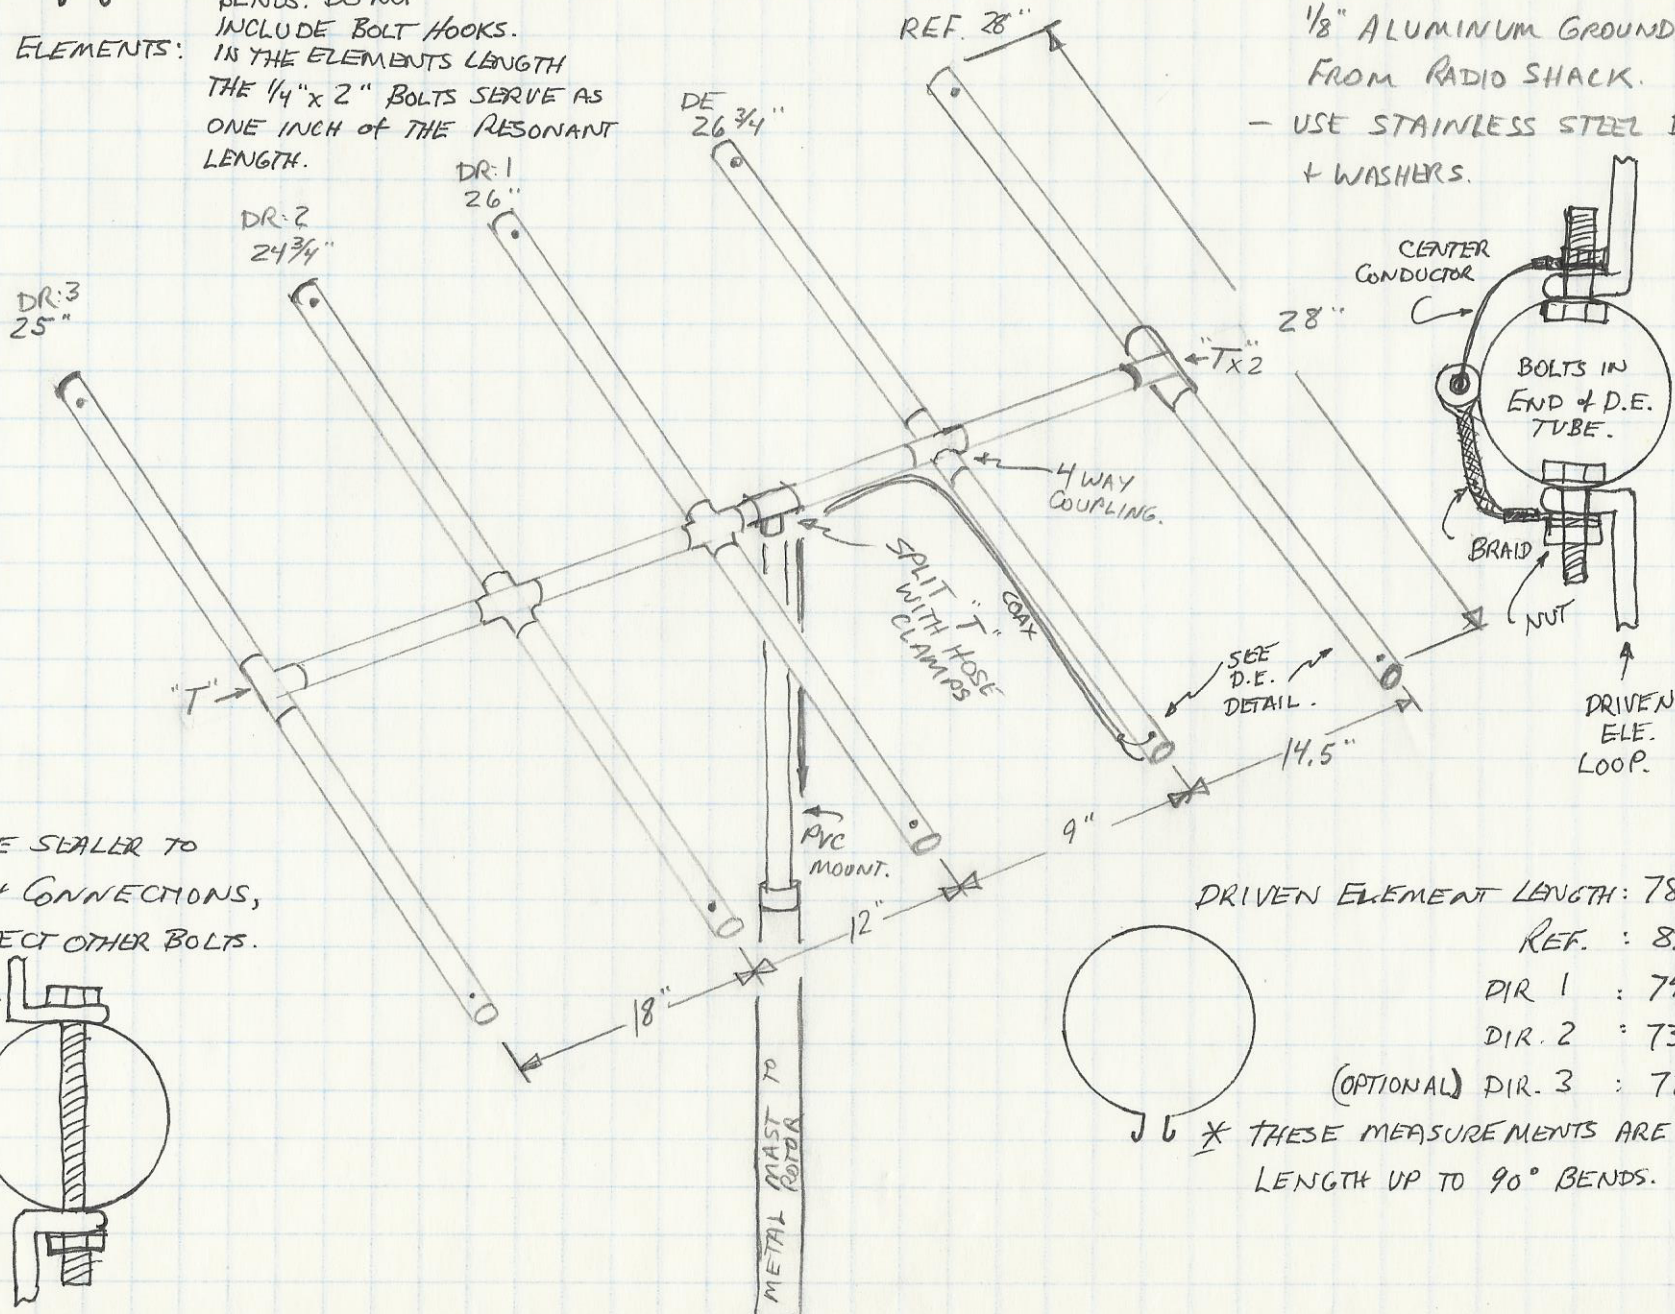 BENDS. DO NOT
INCLUDE BOLT HOOKS.
ELEMENTS: IN THE ELEMENTS LENGTH
THE 1/4" x 2" BOLTS SERVE AS
ONE INCH of THE RESONANT
LENGTH.
REF. 28"
1/8" ALUMINUM GROUND
FROM RADIO SHACK.
- USE STAINLESS STEEL
+ WASHERS.
DE
26 3/4"
DR:1
26"
DR:2
24 3/4"
DR:3
25"
28"
"T x 2"
4 WAY
COUPLING.
SPLIT "T"
WITH HOSE
CLAMPS
COAX
"T"
SEE
D.E.
DETAIL.
CENTER
CONDUCTOR
BOLTS IN
END of D.E.
TUBE.
BRAID
NUT
DRIVEN
ELE.
LOOP.
14.5"
9"
12"
18"
PVC
MOUNT.
METAL MAST TO
ROTOR
SEALER TO
CONNECTIONS,
OTHER BOLTS.
DRIVEN ELEMENT LENGTH: 78
REF. : 8
DIR 1 : 7
DIR. 2 : 73
(OPTIONAL) DIR. 3 : 7
* THESE MEASUREMENTS ARE
LENGTH UP TO 90° BENDS.